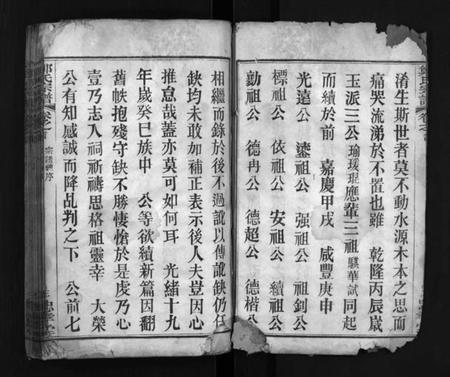 淆生斯世者莫不動水源木本之思而
痛哭流涕於不置也雖 乾隆丙辰歲
玉派三公瑜璞琨應輩三祖騏華試同起
而續於前 嘉慶甲戌 咸豐庚申
光遠公 鎏祖公 强祖公 祖釗公
標祖公 依祖公 安祖公 續祖公
勳祖公 德冉公 德超公 德楷公
相繼而錄於後不過訛以傳訛缺仍仁
缺均未敢如補正表示後人夫豈因心
推息哉蓋亦莫可如何耳 光緒十九
年歲癸巳族中 公等欲續新篇因翻
舊帙抱殘守缺不勝悽愴於是虔乃心
壹乃志入祠祈禱思格祖靈幸 大榮
公有知感誠而降乩判之下 公前七
氏宗譜 卷之首